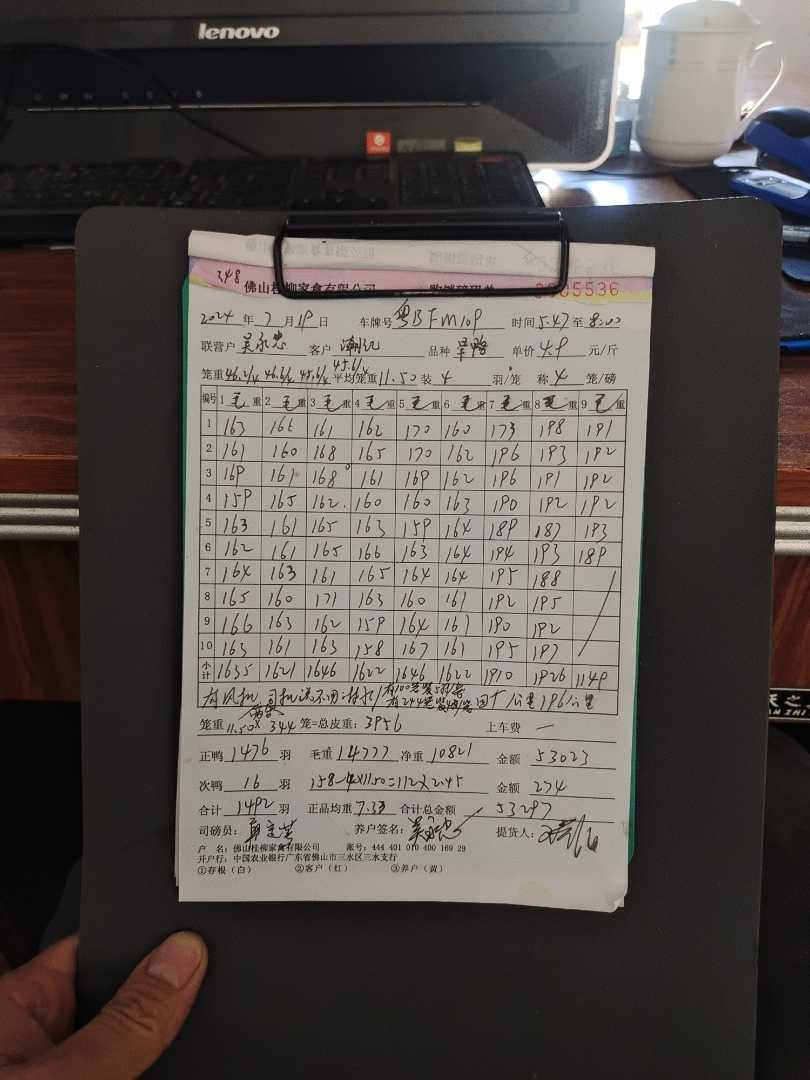 lenovo
lenovo
348 佛山桂柳家禽有限公司
5536
2024年7月19日 车牌号 粤BFM109 时间 5:47至8:00
联营户 吴永忠 客户 品种 旱鸭 单价 4.9 元/斤
45.6/4
笼重 46.2/4 46.6/4 45.6/4 平均笼重 11.50 装 4 羽/笼 称 4 笼/磅
编号 1毛重 2毛重 3毛重 4毛重 5毛重 6毛重 7毛重 8毛重 9毛重
1 163 166 161 162 170 160 173 198 191
2 161 160 168 165 170 162 196 193 192
3 169 161 168 161 169 162 196 191 192
4 159 165 162 160 160 163 190 192 192
5 163 161 165 163 159 164 189 187 193
6 162 161 165 166 163 164 194 193 189
7 164 163 161 165 164 164 195 188
8 165 160 171 163 160 161 192 195
9 166 163 162 159 164 161 190 192
10 163 161 163 158 167 161 195 197
小计 1635 1621 1646 1622 1646 1622 1910 1926 1149
有风机 司机说不用淋水 有100笼装5羽/笼
有244笼装4羽/笼 196公里
笼重 11.50× 344 笼=总皮重: 3956 上车费 —
正鸭 1476 羽 毛重 14777 净重 10821 金额 53023
次鸭 16 羽 158-4×11.50=112×2.45 金额 274
合计 1492 羽 正品均重 7.33 合计总金额 53297
司磅员: 养户签名: 吴永忠 提货人:
户 名: 佛山桂柳家禽有限公司 账号: 444 401 010 400 169 29
开户行: 中国农业银行广东省佛山市三水区三水支行
①存根(白) ②客户(红) ③养户(黄)